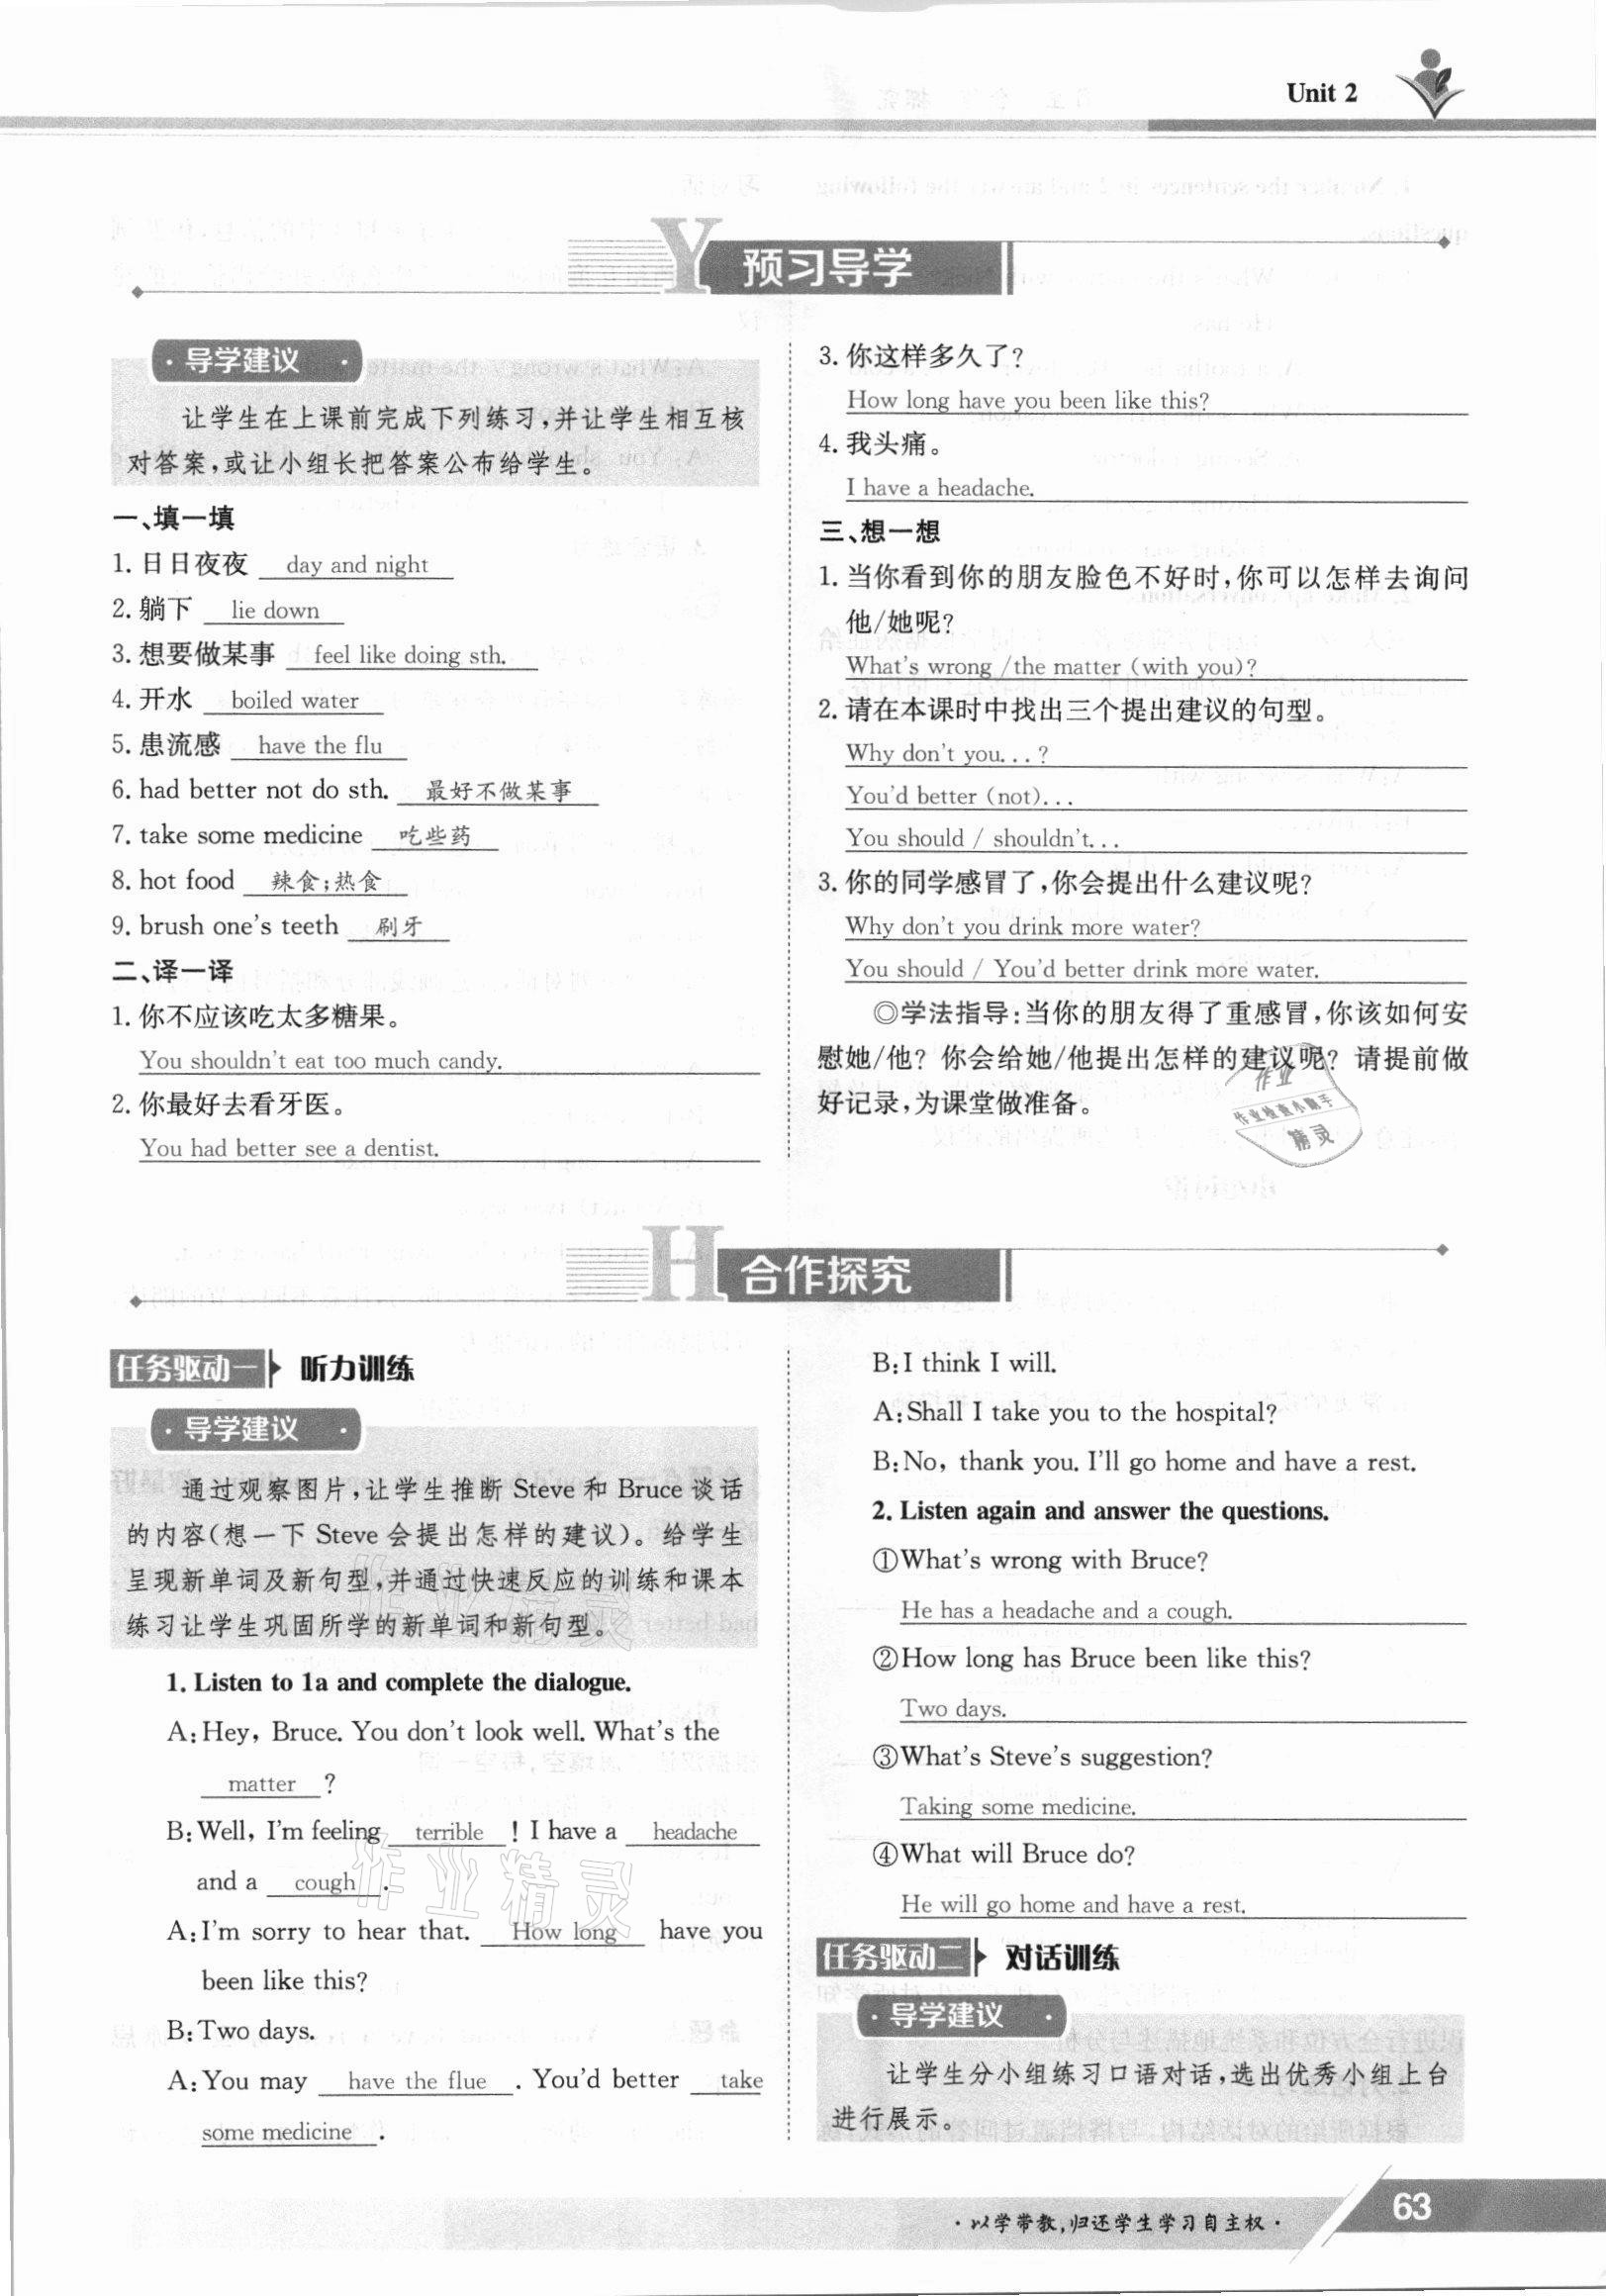 Unit 2
Y 预习导学
·导学建议·
让学生在上课前完成下列练习,并让学生相互核
对答案,或让小组长把答案公布给学生。
一、填一填
1. 日日夜夜 day and night
2. 躺下 lie down
3. 想要做某事 feel like doing sth.
4. 开水 boiled water
5. 患流感 have the flu
6. had better not do sth. 最好不做某事
7. take some medicine 吃些药
8. hot food 辣食;热食
9. brush one's teeth 刷牙
二、译一译
1. 你不应该吃太多糖果。
You shouldn't eat too much candy.
2. 你最好去看牙医。
You had better see a dentist.
3. 你这样多久了?
How long have you been like this?
4. 我头痛。
I have a headache.
三、想一想
1. 当你看到你的朋友脸色不好时,你可以怎样去询问
他/她呢?
What's wrong /the matter (with you)?
2. 请在本课时中找出三个提出建议的句型。
Why don't you...?
You'd better (not)...
You should / shouldn't...
3. 你的同学感冒了,你会提出什么建议呢?
Why don't you drink more water?
You should / You'd better drink more water.
◎学法指导:当你的朋友得了重感冒,你该如何安
慰她/他? 你会给她/他提出怎样的建议呢? 请提前做
好记录,为课堂做准备。
作业
作业检查小助手
精灵
H 合作探究
任务驱动一 听力训练
·导学建议·
通过观察图片,让学生推断 Steve 和 Bruce 谈话
的内容(想一下 Steve 会提出怎样的建议)。给学生
呈现新单词及新句型,并通过快速反应的训练和课本
练习让学生巩固所学的新单词和新句型。
1. Listen to 1a and complete the dialogue.
A: Hey, Bruce. You don't look well. What's the
matter ?
B: Well, I'm feeling terrible ! I have a headache
and a cough .
A: I'm sorry to hear that. How long have you
been like this?
B: Two days.
A: You may have the flue . You'd better take
some medicine .
B: I think I will.
A: Shall I take you to the hospital?
B: No, thank you. I'll go home and have a rest.
2. Listen again and answer the questions.
①What's wrong with Bruce?
He has a headache and a cough.
②How long has Bruce been like this?
Two days.
③What's Steve's suggestion?
Taking some medicine.
④What will Bruce do?
He will go home and have a rest.
任务驱动二 对话训练
·导学建议·
让学生分小组练习口语对话,选出优秀小组上台
进行展示。
作业精灵
作业精灵
·以学带教,归还学生学习自主权·
63